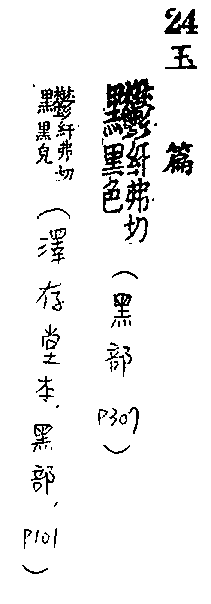 24 玉篇
紆弗切
黑色
(黑部 P307)
紆弗切
黑皃
(澤存堂本, 黑部, P101)